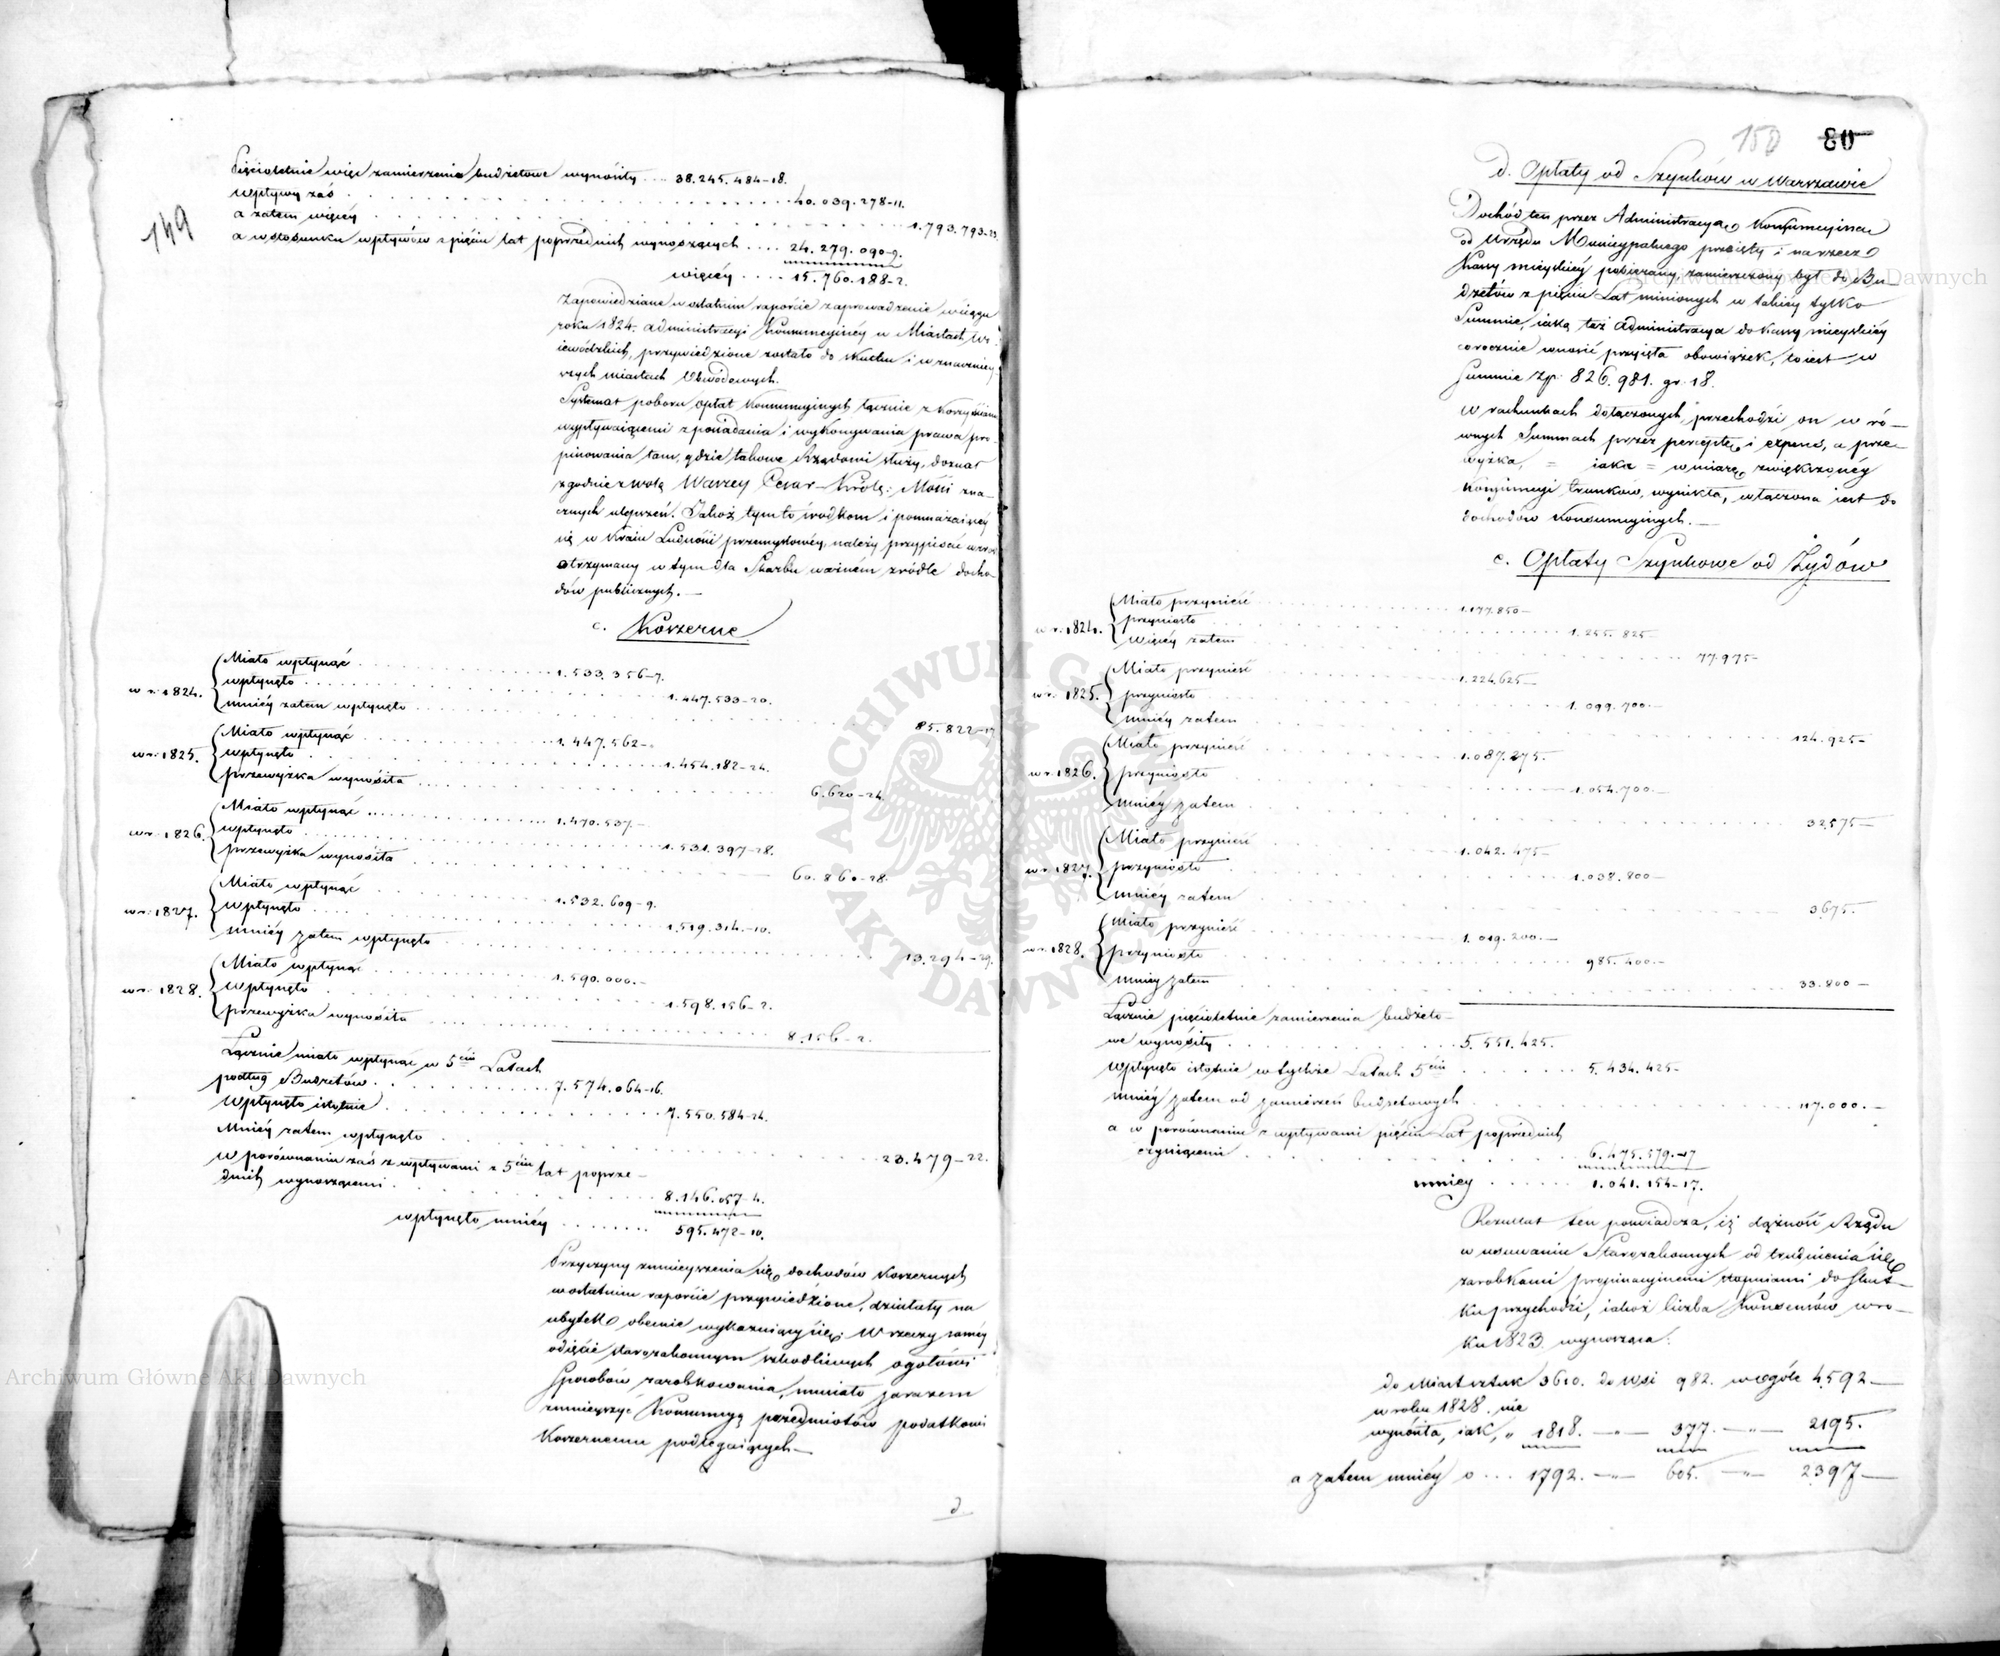 149
Pięcioletnie więc zamierzenia budżetowe wynosiły .... 38.245.484-18.
Wpływy zaś . . . 40.039.278-11.
a zatem więcéy . . . 1.793.793-23
a w stosunku wpływów z pięciu lat poprzednich wynoszących .... 24.279.090-9.
więcéy .... 15.760.188-2.
Zapowiedziane w ostatnim raporcie zaprowadzenie w ciągu
roku 1824. administracyi Konsumcyinéy w Miastach Wo-
iewódzkich, przywiedzione zostało do skutku i w znaczniey-
szych miastach Obwodowych.
Systemat poboru opłat Konsumcyinych łącznie z Korzyściami
wypływaiącemi z posiadania i wykonywania prawa pro-
pinowania tam, gdzie takowe Rządowi służy, doznał
zgodnie z wolą Waszey Cesar-Krolę: Mości zna-
cznych ulepszeń. Jakoż tym to środkom i pomnażaiącéy
się w Kraiu Ludności przemysłowéy, należy przypisać wzrost
otrzymany w tym dla Skarbu ważném zródle docho-
dów publicznych. —
c. Koszerne
w r. 1824.
Miało wpłynąć . . . 1.533.356-7.
wpłynęło . . . 1.447.533-20.
mniéy zatem wpłynęło . . . 85.822-17
w r. 1825.
Miało wpłynąć . . . 1.447.562-.
wpłynęło . . . 1.454.182-24.
przewyżka wynosiła . . . 6.620-24.
w r. 1826.
Miało wpłynąć . . . 1.470.537.-
wpłynęło . . . 1.531.397-28.
przewyżka wynosiła . . . 60.860-28.
w r. 1827.
Miało wpłynąć . . . 1.532.609-9.
wpłynęło . . . 1.519.314.-10.
mniéy zatem wpłynęło . . . 13.294-29.
w r. 1828.
Miało wpłynąć . . . 1.590.000.-
wpłynęło . . . 1.598.156-2.
przewyżka wynosiła . . . 8.156-2.
Łącznie miało wpłynąć w 5ciu Latach
podług Budżetów . . . 7.574.064-16.
Wpłynęło istotnie . . . 7.550.584-24.
Mniéy zatem wpłynęło . . . 23.479-22.
w porównaniu zaś z wpływami z 5ciu lat poprze-
dnich wynoszącemi . . . 8.146.057-4.
wpłynęło mniéy . . . 595.472-10.
Przyczyny zmnieyszenia się dochodów Koszernych
w ostatnim raporcie przywiedzione, działały na
ubytek obecnie wykazuiący się. W rzeczy saméy
odięcie starozakonnym szkodliwych ogółowi
sposobów zarobkowania, musiało zarazem
zmnieyszyć Konsumcyą przedmiotów podatkowi
Koszernemu podlegaiących —
d
150 80
d. Opłaty od Szynków w Warszawie
Dochód ten przez Administracyą Konsumcyiną
od Urzędu Municypalnego przeięty i na rzecz
Kassy mieyskiéy pobierany, zamierzony był do Bu-
dżetów z pięciu Lat minionych w takiéy tylko
Summie, iaką też Administracya do Kassy mieyskiéy
corocznie wnosić przyięła obowiązek, to iest w
Summie Złp: 826.981. gr. 18.
W rachunkach dołączonych, przechodzi on w ró-
wnych Summach przez perceptę i expens, a prze-
wyżka, = iaka = w miarę zwiększonéy
Konsumcyi trunków, wynikła, włączona iest do
dochodów Konsumcyinych. —
e. Opłaty Szynkowe od Żydów
w r. 1824.
Miało przynieść . . . 1.177.850-
przyniosło . . . 1.255.825-
więcéy zatem . . . 77.975-
w r. 1825.
Miało przynieść . . . 1.224.625-
przyniosło . . . 1.099.700.-
mniéy zatem . . . 124.925-
w r. 1826.
Miało przynieść . . . 1.087.275.-
przyniosło . . . 1.054.700.-
mniéy zatem . . . 32.575-
w r. 1827.
Miało przynieść . . . 1.042.475-
przyniosło . . . 1.038.800-
mniéy zatem . . . 3.675.-
w r. 1828.
Miało przynieść . . . 1.019.200.-
przyniosło . . . 985.400.-
mniéy zatem . . . 33.800-
Łącznie pięcioletnie zamierzenia budżeto-
we wynosiły . . . 5.551.425.
Wpłynęło istotnie w tychże Latach 5ciu . . . 5.434.425-
mniéy zatem od zamierzeń budżetowych . . . 117.000.-
a w porównaniu z wpływami pięciu Lat poprzednich
czyniącemi . . . 6.475.579.-17
mniéy . . . 1.041.154-17.
Rezultat ten powiadcza, iż dążność Rządu
w usuwaniu Starozakonnych od trudnienia się
zarobkami propinacyinemi stopniami do skut-
ku przychodzi, iakoż liczba Konsensów w ro-
ku 1823. wynosząca:
do Miast sztuk 3610. do Wsi 982. w ogóle 4592—
w roku 1828. nie
wynosiła, iak, „ 1818. —„— 377. —„— 2195.
a zatem mniéy o ... 1792. —„— 605. —„— 2397—
Archiwum Główne Akt Dawnych
Archiwum Główne Akt Dawnych